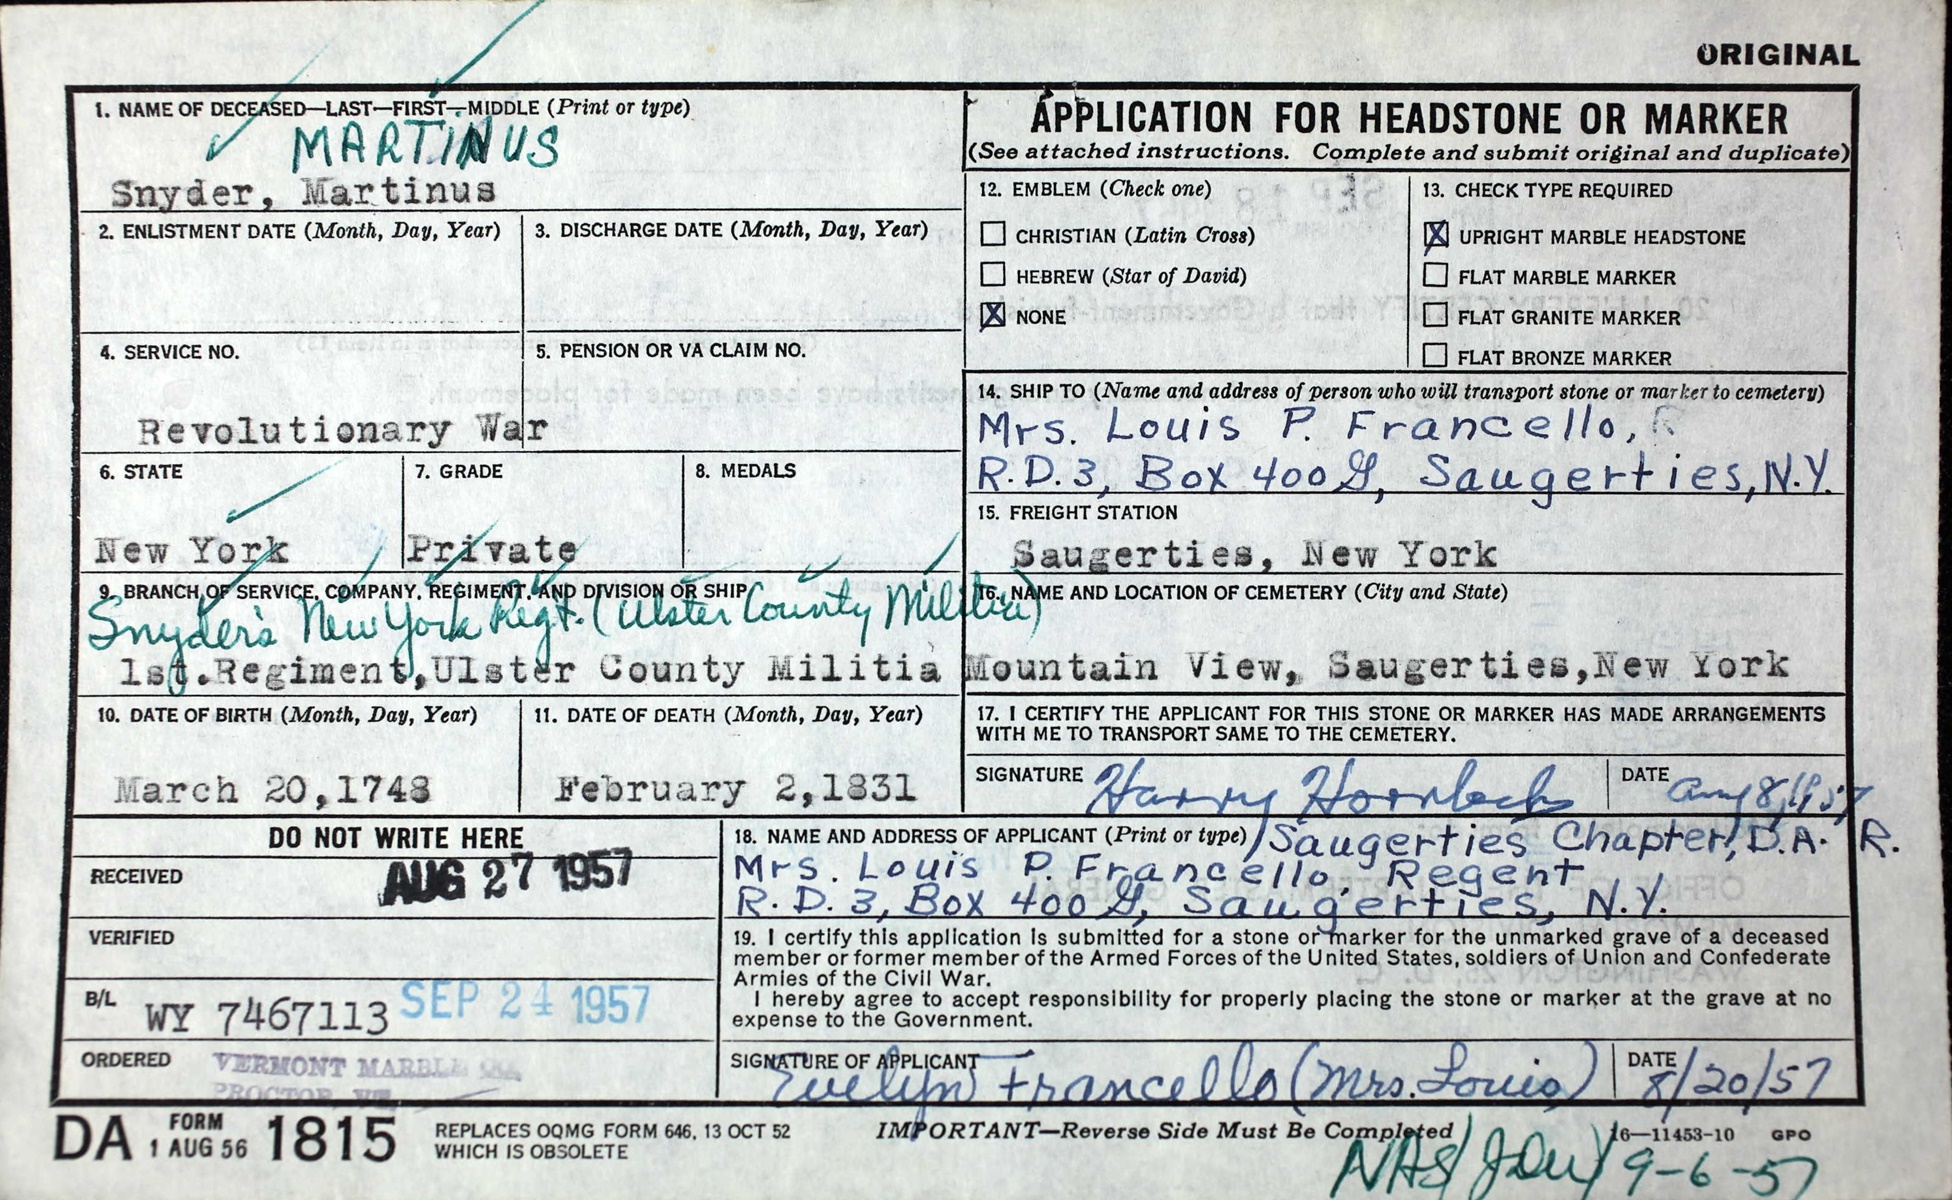 ORIGINAL
1. NAME OF DECEASED—LAST—FIRST—MIDDLE (Print or type)
MARTINUS
Snyder, Martinus
2. ENLISTMENT DATE (Month, Day, Year)
3. DISCHARGE DATE (Month, Day, Year)
4. SERVICE NO.
5. PENSION OR VA CLAIM NO.
Revolutionary War
6. STATE
New York
7. GRADE
Private
8. MEDALS
9. BRANCH OF SERVICE, COMPANY, REGIMENT, AND DIVISION OR SHIP
Snyder's New York Regt. (Ulster County Militia)
1st.Regiment,Ulster County Militia
10. DATE OF BIRTH (Month, Day, Year)
March 20,1748
11. DATE OF DEATH (Month, Day, Year)
February 2,1831
APPLICATION FOR HEADSTONE OR MARKER
(See attached instructions. Complete and submit original and duplicate)
12. EMBLEM (Check one)
CHRISTIAN (Latin Cross)
HEBREW (Star of David)
X NONE
13. CHECK TYPE REQUIRED
X UPRIGHT MARBLE HEADSTONE
FLAT MARBLE MARKER
FLAT GRANITE MARKER
FLAT BRONZE MARKER
14. SHIP TO (Name and address of person who will transport stone or marker to cemetery)
Mrs. Louis P. Francello,
R.D.3, Box 400G, Saugerties, N.Y.
15. FREIGHT STATION
Saugerties, New York
16. NAME AND LOCATION OF CEMETERY (City and State)
Mountain View, Saugerties,New York
17. I CERTIFY THE APPLICANT FOR THIS STONE OR MARKER HAS MADE ARRANGEMENTS
WITH ME TO TRANSPORT SAME TO THE CEMETERY.
SIGNATURE Harry Hornbeck
DATE Aug 8, 1957
DO NOT WRITE HERE
RECEIVED AUG 27 1957
VERIFIED
B/L WY 7467113 SEP 24 1957
ORDERED VERMONT MARBLE CO.
PROCTOR, VT.
18. NAME AND ADDRESS OF APPLICANT (Print or type) / Saugerties Chapter, D.A.R.
Mrs. Louis P. Francello, Regent
R.D.3, Box 400G, Saugerties, N.Y.
19. I certify this application is submitted for a stone or marker for the unmarked grave of a deceased
member or former member of the Armed Forces of the United States, soldiers of Union and Confederate
Armies of the Civil War.
I hereby agree to accept responsibility for properly placing the stone or marker at the grave at no
expense to the Government.
SIGNATURE OF APPLICANT Evelyn Francello (Mrs. Louis)
DATE 8/20/57
DA FORM 1 AUG 56 1815
REPLACES OQMG FORM 646, 13 OCT 52
WHICH IS OBSOLETE
IMPORTANT—Reverse Side Must Be Completed
16—11453-10 GPO
9-6-57